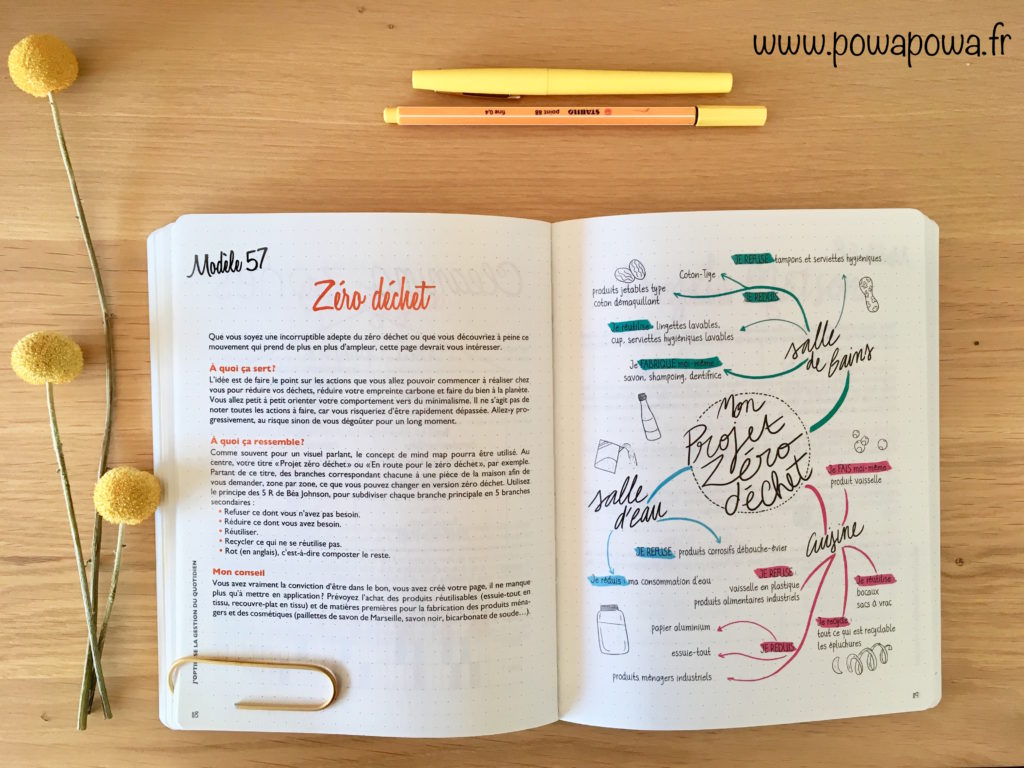 www.powapowa.fr
STABILO point 88 fine 0,4
Modèle 57
Zéro déchet
Que vous soyez une incorruptible adepte du zéro déchet ou que vous découvriez à peine ce
mouvement qui prend de plus en plus d'ampleur, cette page devrait vous intéresser.
À quoi ça sert ?
L'idée est de faire le point sur les actions que vous allez pouvoir commencer à réaliser chez
vous pour réduire vos déchets, réduire votre empreinte carbone et faire du bien à la planète.
Vous allez petit à petit orienter votre comportement vers du minimalisme. Il ne s'agit pas de
noter toutes les actions à faire, car vous risqueriez d'être rapidement dépassée. Allez-y pro-
gressivement, au risque sinon de vous dégoûter pour un long moment.
À quoi ça ressemble ?
Comme souvent pour un visuel parlant, le concept de mind map pourra être utilisé. Au
centre, votre titre « Projet zéro déchet » ou « En route pour le zéro déchet », par exemple.
Partant de ce titre, des branches correspondant chacune à une pièce de la maison afin de
vous demander, zone par zone, ce que vous pouvez changer en version zéro déchet. Utilisez
le principe des 5 R de Béa Johnson, pour subdiviser chaque branche principale en 5 branches
secondaires :
• Refuser ce dont vous n'avez pas besoin.
• Réduire ce dont vous avez besoin.
• Réutiliser.
• Recycler ce qui ne se réutilise pas.
• Rot (en anglais), c'est-à-dire composter le reste.
Mon conseil
Vous avez vraiment la conviction d'être dans le bon, vous avez créé votre page, il ne manque
plus qu'à mettre en application ? Prévoyez l'achat des produits réutilisables (essuie-tout en
tissu, recouvre-plat en tissu) et de matières premières pour la fabrication des produits ména-
gers et des cosmétiques (paillettes de savon de Marseille, savon noir, bicarbonate de soude…).
SE LA GESTION DU QUOTIDIEN
88
JE REFUSE tampons et serviettes hygiéniques
Coton-Tige
produits jetables type
coton démaquillant
JE RÉDUIS
Je réutilise lingettes lavables,
cup, serviettes hygiéniques lavables
Je FABRIQUE moi-même
savon, shampoing, dentifrice
salle
de bains
Mon
Projet
Zéro
déchet
Je FAIS moi-même
produit vaisselle
salle
d'eau
cuisine
JE REFUSE produits corrosifs débouche-évier
Je réduis ma consommation d'eau
JE REFUSE
vaisselle en plastique
produits alimentaires industriels
Je réutilise
bocaux
sacs à vrac
papier aluminium
essuie-tout
JE RÉDUIS
produits ménagers industriels
Je recycle
tout ce qui est recyclable
les épluchures
89